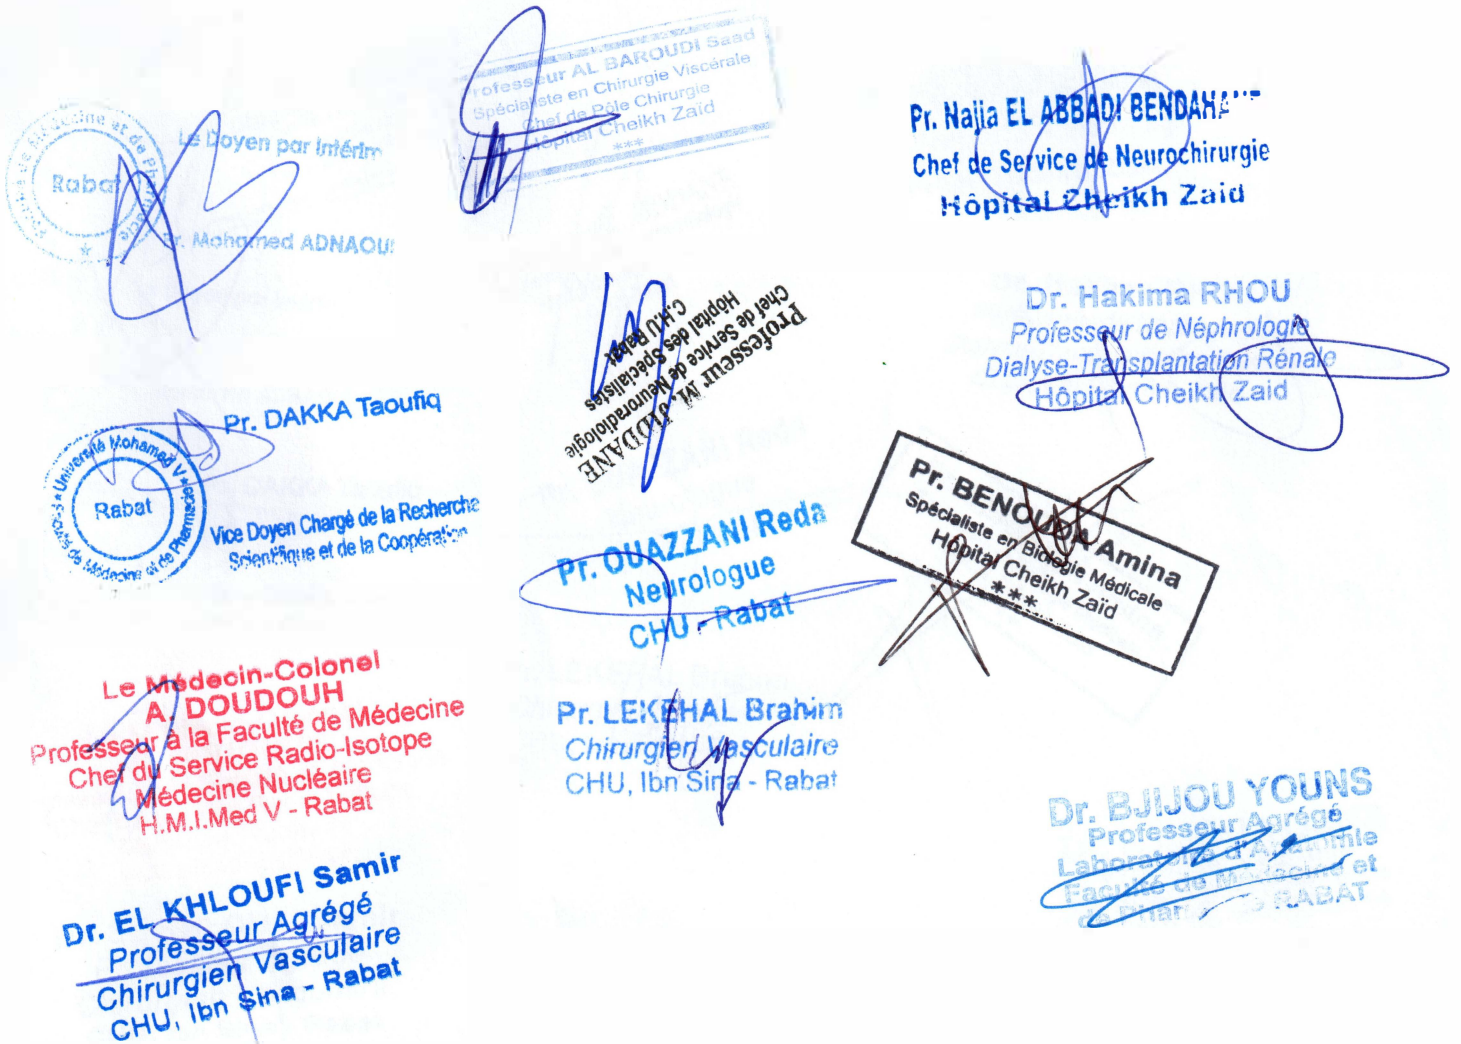 Professeur AL BAROUDI Saad
Spécialiste en Chirurgie Viscérale
Chef de Pôle Chirurgie
Hôpital Cheikh Zaïd
***
Pr. Najia EL ABBADI
Chef de Service de Neurochirurgie
Hôpital Cheikh Zaid
de Médecine et de Pharmacie
Rabat
Le Doyen par Intérim
Pr. Mohamed ADNAOUI
Professeur M. JIDDANE
Chef de Service de Neuroradiologie
Hôpital des Spécialistes
C.H.U Rabat
Dr. Hakima RHOU
Professeur de Néphrologie
Dialyse-Transplantation Rénale
Hôpital Cheikh Zaid
Pr. DAKKA Taoufiq
Université Mohamed V
de Médecine et de Pharmacie
Rabat
Vice Doyen Chargé de la Recherche
Scientifique et de la Coopération
Pr. OUAZZANI Reda
Neurologue
CHU - Rabat
Pr. BENOUDA Amina
Spécialiste en Biologie Médicale
Hôpital Cheikh Zaïd
***
Le Médecin-Colonel
A. DOUDOUH
Professeur à la Faculté de Médecine
Chef du Service Radio-Isotope
Médecine Nucléaire
H.M.I.Med V - Rabat
Pr. LEKEHAL Brahim
Chirurgien Vasculaire
CHU, Ibn Sina - Rabat
Dr. BJIJOU YOUNS
Professeur Agrégé
Laboratoire d'Anatomie
Faculté de Médecine et
de RABAT
Dr. EL KHLOUFI Samir
Professeur Agrégé
Chirurgien Vasculaire
CHU, Ibn Sina - Rabat